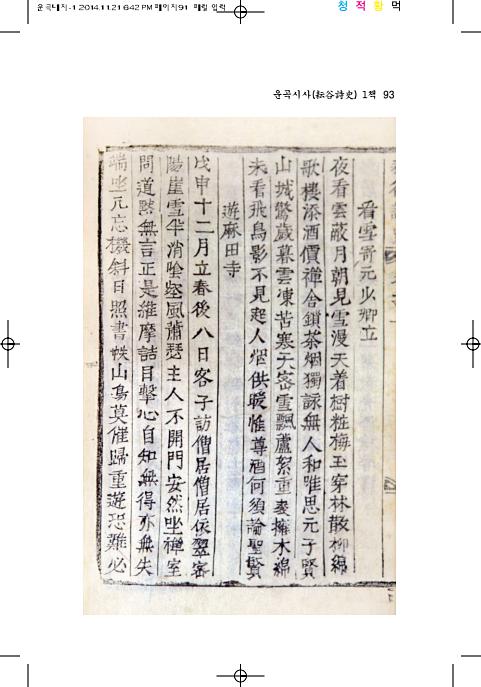 운곡대지-1 2014.11.21 6:42 PM 페이지91 매킬 입력
청 적 황 먹
운곡시사(耘谷詩史) 1책 93
看雪寄元少卿立
夜看雲蔽月朝見雪漫天着樹粧梅玉穿林散柳綿
歌樓添酒價禪舍鎖茶烟獨詠無人和唯思元子賢
山城驚歲暮雲凍苦寒天密雪飄蘆絮重裘擁木綿
未看飛鳥影不見起人烟供暖惟尊酒何須論聖賢
遊麻田寺
戊申十二月立春後八日客子訪僧居僧居依翠密
陽崖雪半消陰壑風蕭瑟主人不開門安然坐禪室
問道默無言正是維摩詰目擊心自知無得亦無失
端坐元忘機斜日照書帙山鳥莫催歸重遊恐難必